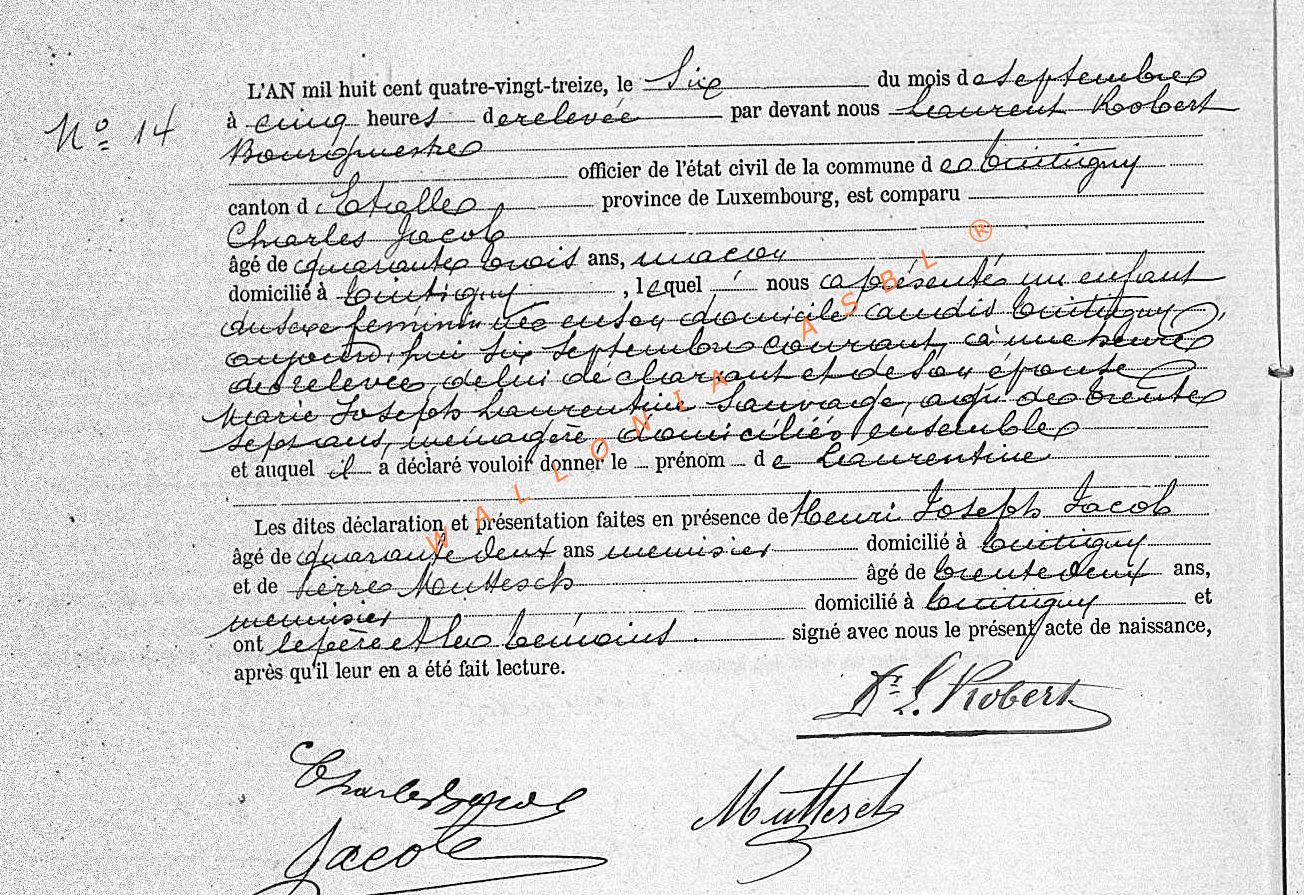 L'AN mil huit cent quatre-vingt-treize, le Six du mois de septembre
N° 14
à cinq heures de relevée par devant nous Laurent Robert
Bourgmestre
officier de l'état civil de la commune de Tintigny
canton d'Etalle, province de Luxembourg, est comparu
Charles Jacob
âgé de quarante trois ans, maçon
domicilié à Tintigny, lequel nous a présenté un enfant
du sexe feminin née en son domicile audit Tintigny,
aujourd'hui six Septembre courant, à une heure
de relevée, de lui déclarant et de son épouse
Marie Joseph Laurentine Sauvage, agée de trente
sept ans, ménagère, domiciliés ensemble
et auquel il a déclaré vouloir donner le prénom de Laurentine
Les dites déclaration et présentation faites en présence de Henri Joseph Jacob
âgé de quarante deux ans menuisier domicilié à Tintigny
et de Pierre Muttesch âgé de trente deux ans,
menuisier domicilié à Tintigny et
ont le père et les témoins signé avec nous le présent acte de naissance,
après qu'il leur en a été fait lecture.
Dr. L. Robert
Charles Jacob
Muttesch
Jacob
WALLONIA ASBL ®